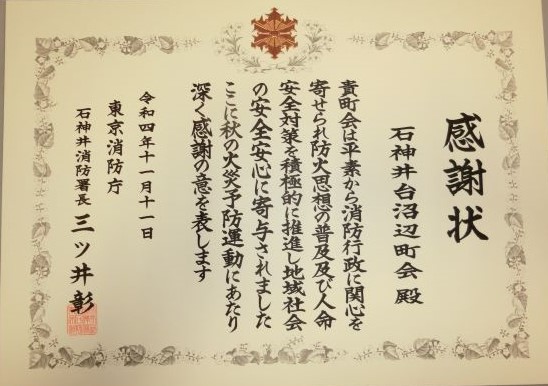 感謝状
石神井台沼辺町会 殿
貴町会は平素から消防行政に関心を
寄せられ防火思想の普及及び人命
安全対策を積極的に推進し地域社会
の安全安心に寄与されました
ここに秋の火災予防運動にあたり
深く感謝の意を表します
令和四年十一月十一日
東京消防庁
石神井消防署長 三ツ井彰